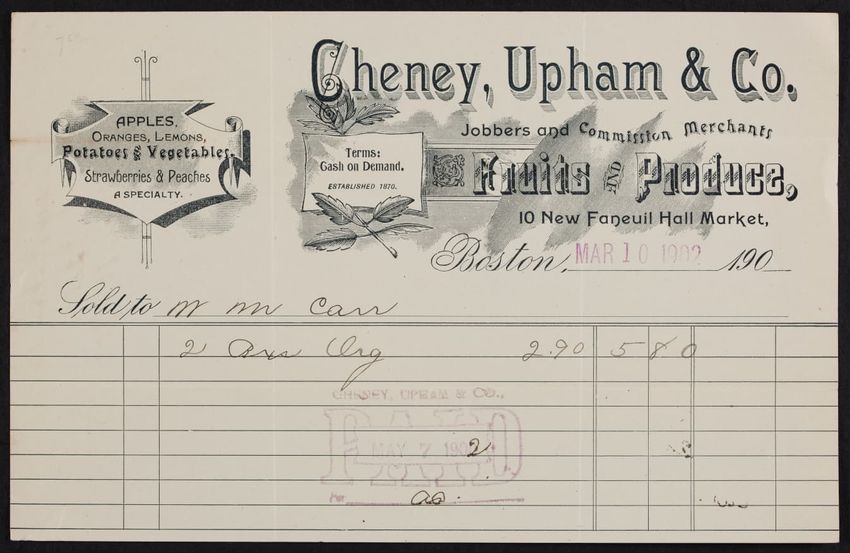 Cheney, Upham & Co.
Jobbers and Commission Merchants
Fruits AND Produce,
10 New Faneuil Hall Market,
APPLES,
ORANGES, LEMONS,
Potatoes & Vegetables,
Strawberries & Peaches
A SPECIALTY.
Terms:
Cash on Demand.
ESTABLISHED 1870.
Boston, MAR 10 1902 190
Sold to W M Carr
2 Bxs Org 2.90 5 80
CHENEY, UPHAM & CO.,
PAID
MAY 7 1902
Per